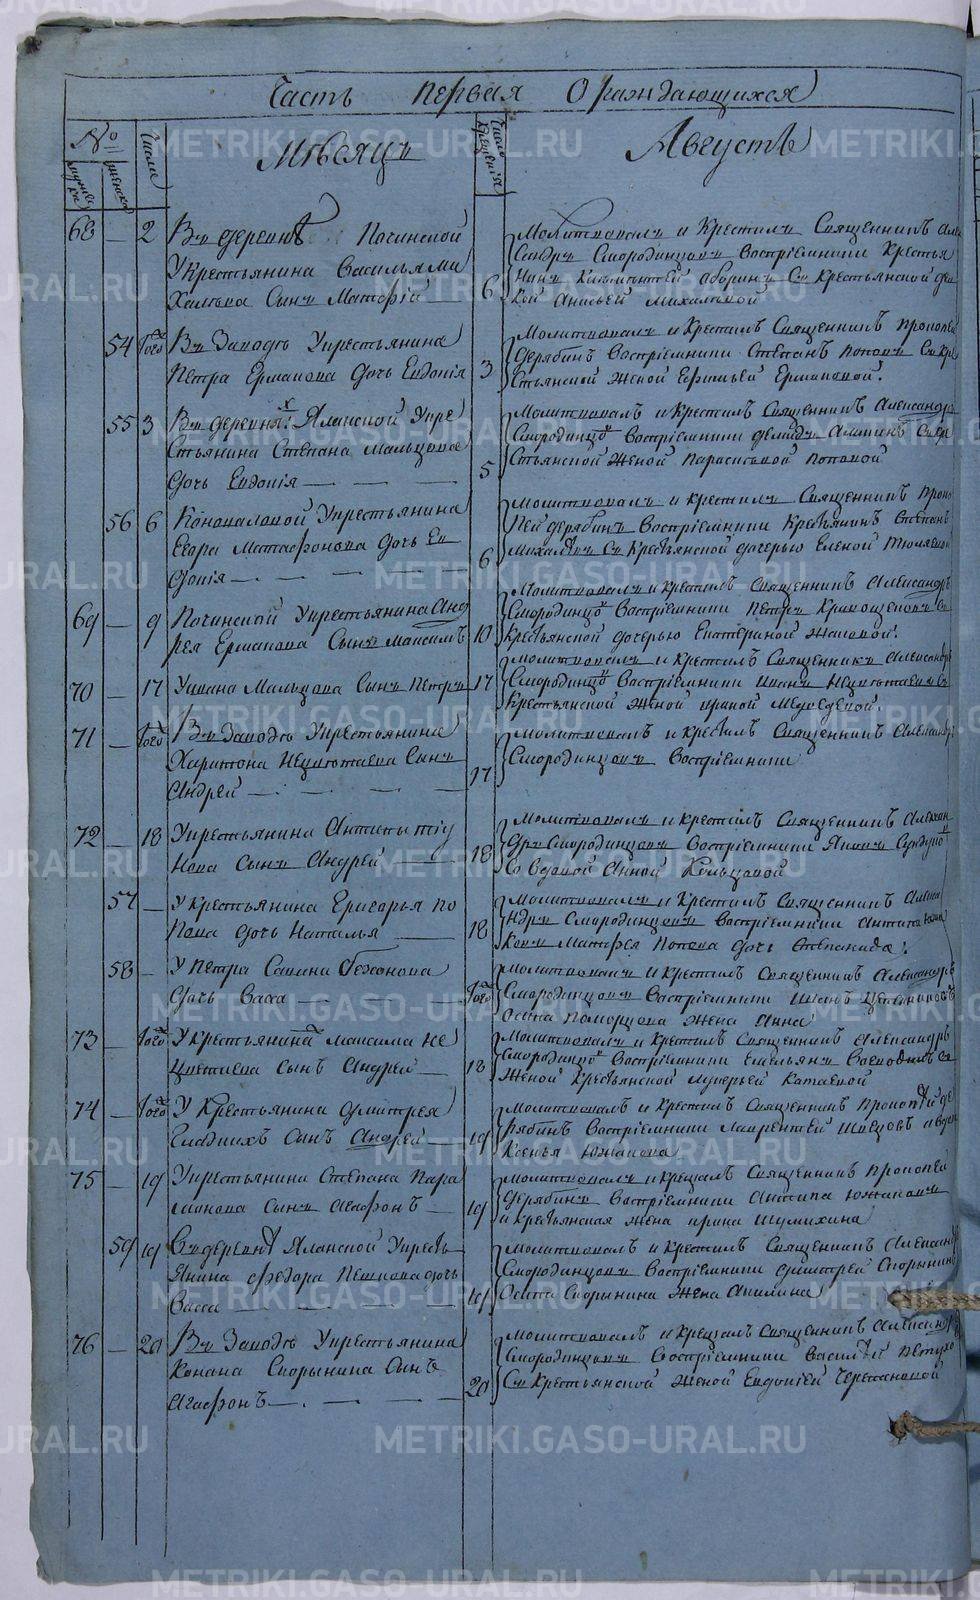 Часть первая О раждающихся
№
Мужеска
Женска
Числа
Мѣсяцъ
Число крещенія
Августъ
68 — 2 Въ деревнѣ Починской
У крестьянина Василья Ми
халева Сынъ Матфей
6 Молитвовалъ и крестилъ Священникъ Алек
сандръ Смородинцовъ Воспріемники Крестья
нинъ Съ крестьянской дев
кой Анисьей Михалевой
54 Того В Заводѣ У крестьянина
Петра Ермакова Дочь Евдокія
3 Молитвовалъ и крестилъ Священникъ Прокопей
Дерябинъ Воспріемники Степанъ Поповъ Съ кре
стьянской Женой Ермаковой.
55 3 Въ деревнѣ Яланской У кре
стьянина Степана Мальцова
Дочь Евдокія
5 Молитвовалъ и крестилъ Священникъ Александръ
Смородинцовъ Воспріемники Демидъ Съ кре
стьянской Женой Парасковой Поповой
56 6 Коноваловой У крестьянина
Егора Матафонова Дочь Ев
докія
6 Молитвовалъ и крестилъ Священникъ Проко
пей Дерябинъ Воспріемники Крестьянинъ Степанъ
Михалевъ Съ Крестьянской дочерью Еленой
69 — 9 Починской У крестьянина Анд
рея Ермакова Сынъ Максимъ
10 Молитвовалъ и крестилъ Священникъ Александръ
Смородинцовъ Воспріемники Петръ Кривощековъ Съ
Крестьянской дочерью Екатериной
70 — 17 У Ивана Мальцова Сынъ Петръ
17 Молитвовалъ и Крестилъ Священникъ Александръ
Смородинцовъ Воспріемники Иванъ Нецветаевъ Съ
Крестьянской женой Ириной Медведевой.
71 — Того Въ Заводѣ У крестьянина
Харитона Нецветаева Сынъ
Андрей
17 Молитвовалъ и крестилъ Священникъ Александръ
Смородинцовъ Воспріемники
72 — 18 У крестьянина Антипы
Сынъ Андрей
18 Молитвовалъ и крестилъ Священникъ Алексан
дръ Смородинцовъ Воспріемники
Со вдовой Анной Кельцовой
57 — У крестьянина Григорья По
пова Дочь Наталья
18 Молитвовалъ и Крестилъ Священникъ Алекса
ндръ Смородинцовъ Воспріемники Антипа
Матфея Попова Дочь Степанида.
58 — У Петра Савина
Дочь Васса
Того Молитвовалъ и крестилъ Священникъ Александръ
Смородинцовъ Воспріемники Иванъ
Осипа Поморцова Жена Анна
73 — Того У Крестьянина Максима Не
цветаева Сынъ Андрей
18 Молитвовалъ и Крестилъ Священникъ Александръ
Смородинцовъ Воспріемники Емельянъ Воеводинъ Съ
Женой Крестьянской Лукерьей Катаевой
74 — Того У Крестьянина Дмитрея
Гладкихъ Сынъ Андрей
19 Молитвовалъ и Крестилъ Священникъ Прокопей Де
рябинъ Воспріемники Лаврентей Швецовъ
Ксенья Южакова
75 — 19 У крестьянина Степана Пара
монова Сынъ Агафонъ
19 Молитвовалъ и крещалъ Священникъ Прокопей
Дерябинъ Воспріемники Антипа Южаковъ
и Крестьянская Жена Ирина Шумихина
59 19 Въ деревнѣ Яланской У кресть
янина Федора Пешкова дочь
Васса
19 Молитвовалъ и крестилъ Священникъ Александръ
Смородинцовъ Воспріемники Димитрей Скорынинъ
Осипа Скорынина Жена Акилина
76 — 20 Въ Заводѣ У крестьянина
Конана Скорынина Сынъ
Агафонъ
20 Молитвовалъ и крещалъ Священникъ Александръ
Смородинцовъ Воспріемники Василѣй Петухо
Съ Крестьянской Женой Евдокіей Черепановой
METRIKI.GASO-URAL.RU